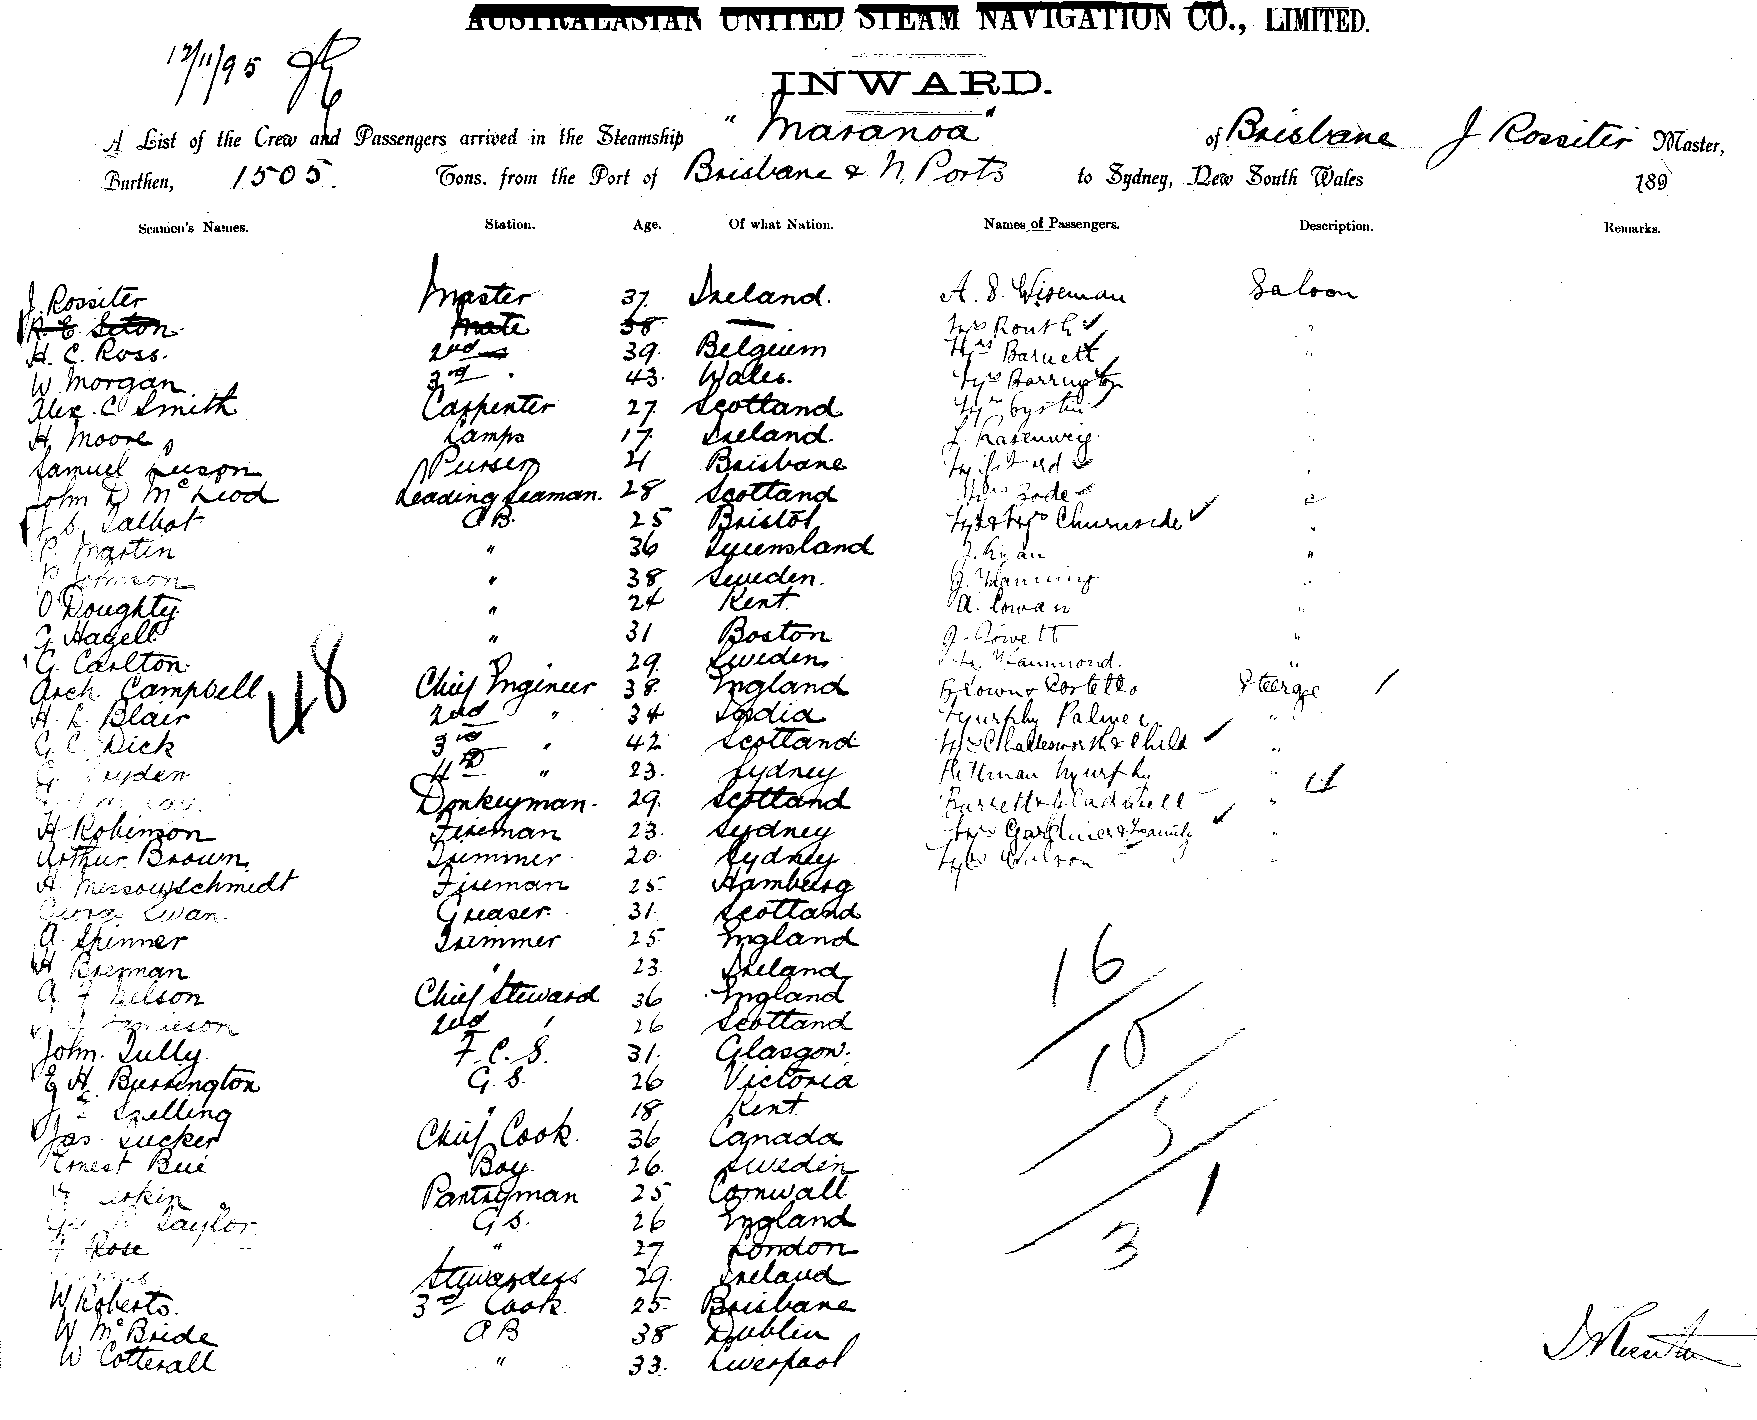 AUSTRALASIAN UNITED STEAM NAVIGATION CO., LIMITED.
12/11/95
INWARD.
A List of the Crew and Passengers arrived in the Steamship "Maranoa" of Brisbane J Rossiter Master,
Burthen, 1505. Tons. from the Port of Brisbane & N. Ports to Sydney, New South Wales 189
Seamen's Names. Station. Age. Of what Nation. Names of Passengers. Description. Remarks.
J. Rossiter Master 37 Ireland. A. S. Wiseman Saloon
Seton Mate 38 Mrs Routh "
H. C. Ross. 2nd 39. Belgium Mrs Barnett "
W Morgan 3rd " 43. Wales. Mrs Barrington
Alex. C Smith Carpenter 27 Scotland
H. Moore Lamps 17. Ireland.
Samuel Luson Purser 21 Brisbane "
John D McLeod Leading Seaman. 28 Scotland Mrs "
Talbot AB. 25 Bristol Mr & Mrs Churnside "
P. Martin " 36 Queensland J. Ryan "
P Johnson " 38 Sweden. J. Manning "
O'Doughty " 24 Kent A. Cowan "
Hagell " 31 Boston J. Jowett "
G. Carlton " 29. Sweden. Hammond. "
Arch. Campbell Chief Engineer 38. England Brown & Costello Steerge /
H. L Blair 2nd " 34 India Murphy Palmer "
G. C. Dick 3rd " 42 Scotland Mrs Charlesworth & Child "
4th " 23. Sydney Pittman Murphy " 4
Donkeyman. 29. Scotland Barrett & Cadwell "
H Robinson Fireman 23. Sydney Mrs Gardiner & Family "
Arthur Brown Trimmer 20. Sydney Mrs Wilson "
H Messowschmidt Fireman 25 Hamburg
George Ewan. Greaser. 31. Scotland
A. Skinner Trimmer 25 England
H Brennan " 23. Ireland
A F Nelson Chief Steward 36 England
Jamieson 2nd " 26 Scotland
John. Tully. F. C. S. 31. Glasgow.
E H. Burrington G. S. 26 Victoria
Snelling " 18 Kent
Jas. Tucker Chief Cook. 36 Canada
Ernest Bue Boy. 26. Sweden
Pantryman 25 Cornwall
Taylor G S. 26 England
F Rose " 27 London
Stewardess 29. Ireland
W Roberts. 3rd Cook. 25 Brisbane
W McBride AB 38 Dublin
W Cotterall " 33. Liverpool
48
16
10
5
1
3